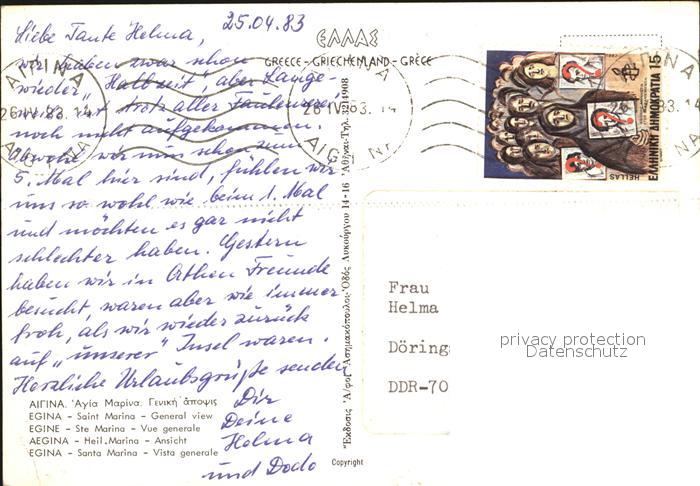 25.04.83
Liebe Tante Helma,
wir haben zwar schon
wieder „Halbzeit", aber Lange-
weile ist trotz aller Faulenzerei
noch nicht aufgekommen.
Obwohl wir nun schon zum
5. Mal hier sind, fühlen wir
uns so wohl wie beim 1. Mal
und möchten es gar nicht
schlechter haben. Gestern
haben wir in Athen Freunde
besucht, waren aber wie immer
froh, als wir wieder zurück
auf „unserer" Insel waren.
Herzliche Urlaubsgrüße senden
Dir
Deine
Helma
und Dodo
ΑΙΓΙΝΑ. Ἁγία Μαρίνα. Γενική ἄποψις
EGINA - Saint Marina - General view
EGINE - Ste Marina - Vue generale
AEGINA - Heil. Marina - Ansicht
EGINA - Santa Marina - Vista generale
ΕΛΛΑΣ
GREECE - GRIECHENLAND - GRÈCE
ΑΙΓΙΝΑ
26 IV 83. 14
AIGINA
26 IV 83. 14
26 IV 83. 14
Ἔκδοσις Ἀ/φοί Ἀσημακόπουλοι Ὁδὸς Λυκούργου 14-16 Ἀθῆναι-Τηλ. 3214908
Copyright
15
ΕΛΛΗΝΙΚΗ ΔΗΜΟΚΡΑΤΙΑ
HELLAS
Frau
Helma
Döring
DDR-70
privacy protection
Datenschutz